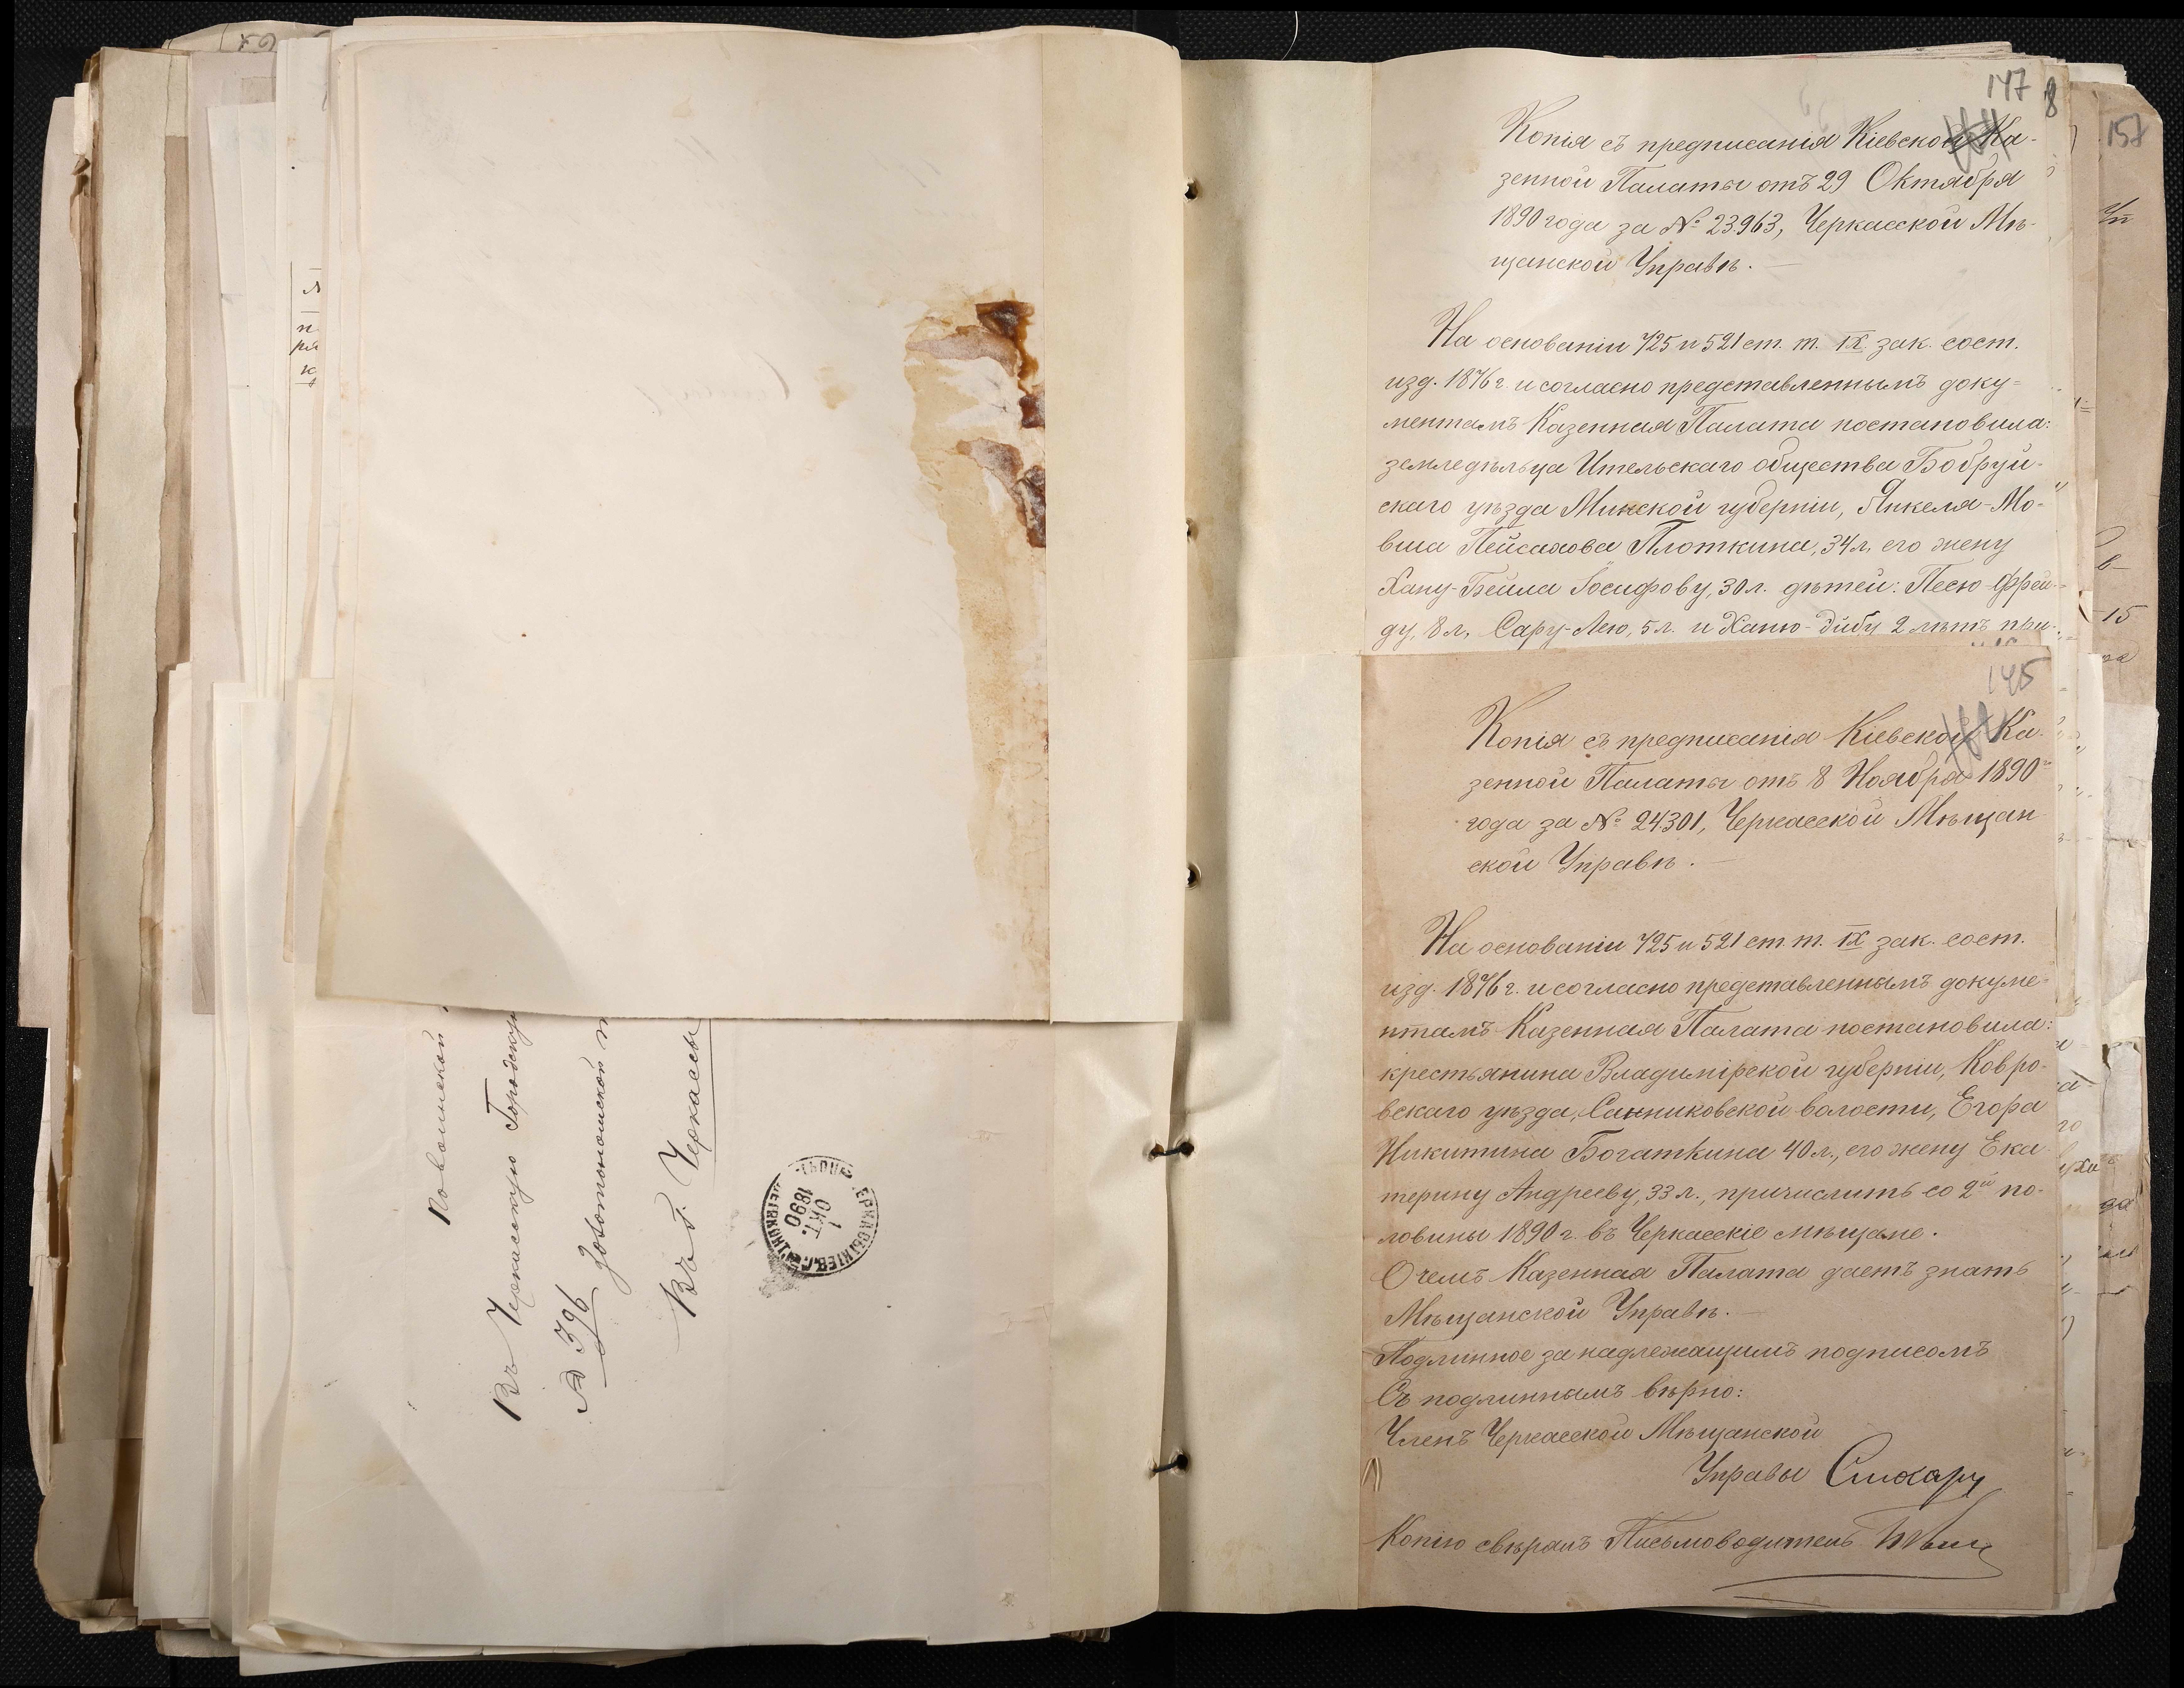 147
Копія съ предписанія Кіевской Ка-
зенной Палаты отъ 29 Октября
1890 года за № 23963, Черкасской Мѣ-
щанской Управѣ.
На основаніи 725 и 521 ст. т. IX зак. сост.
изд. 1876 г. и согласно представленнымъ доку=
ментамъ Казенная Палата постановила:
земледѣльца Ительскаго общества Бобруй-
скаго уѣзда Минской губерніи, Янкеля-Мо-
вша Пейсахова Плоткина, 34 л. его жену
Хану-Бейла Іосифову, 30 л. дѣтей: Песю-Фрей-
ду, 8 л, Сару-Лею, 5 л. и Ханю-Дибу 2 лѣтъ при-
145
Копія съ предписанія Кіевской Ка-
зенной Палаты отъ 8 Ноября 1890
года за № 24301, Черкасской Мѣщан
ской Управѣ.
На основаніи 725 и 521 ст. т. IX зак. сост.
изд. 1876 г. и согласно представленнымъ докуме-
нтамъ Казенная Палата постановила:
крестьянина Владимірской губерніи, Ковро-
вскаго уѣзда, Санниковской волости, Егора
Никитина Богаткина 40 л., его жену Ека
терину Андрееву, 33 л., причислить со 2й по-
ловины 1890 г. въ Черкасскіе мѣщане.
О чемъ Казенная Палата даетъ знать
Мѣщанской Управѣ.
Подлинное за надлежащимъ подписомъ
Съ подлиннымъ вѣрно:
Членъ Черкасской Мѣщанской
Управы
Копію свѣрялъ Письмоводитель
157
15
Въ Черкасскую Городску
№ 396 Золотоношской
Въ г. Черкассы
1 ОКТ. 1890